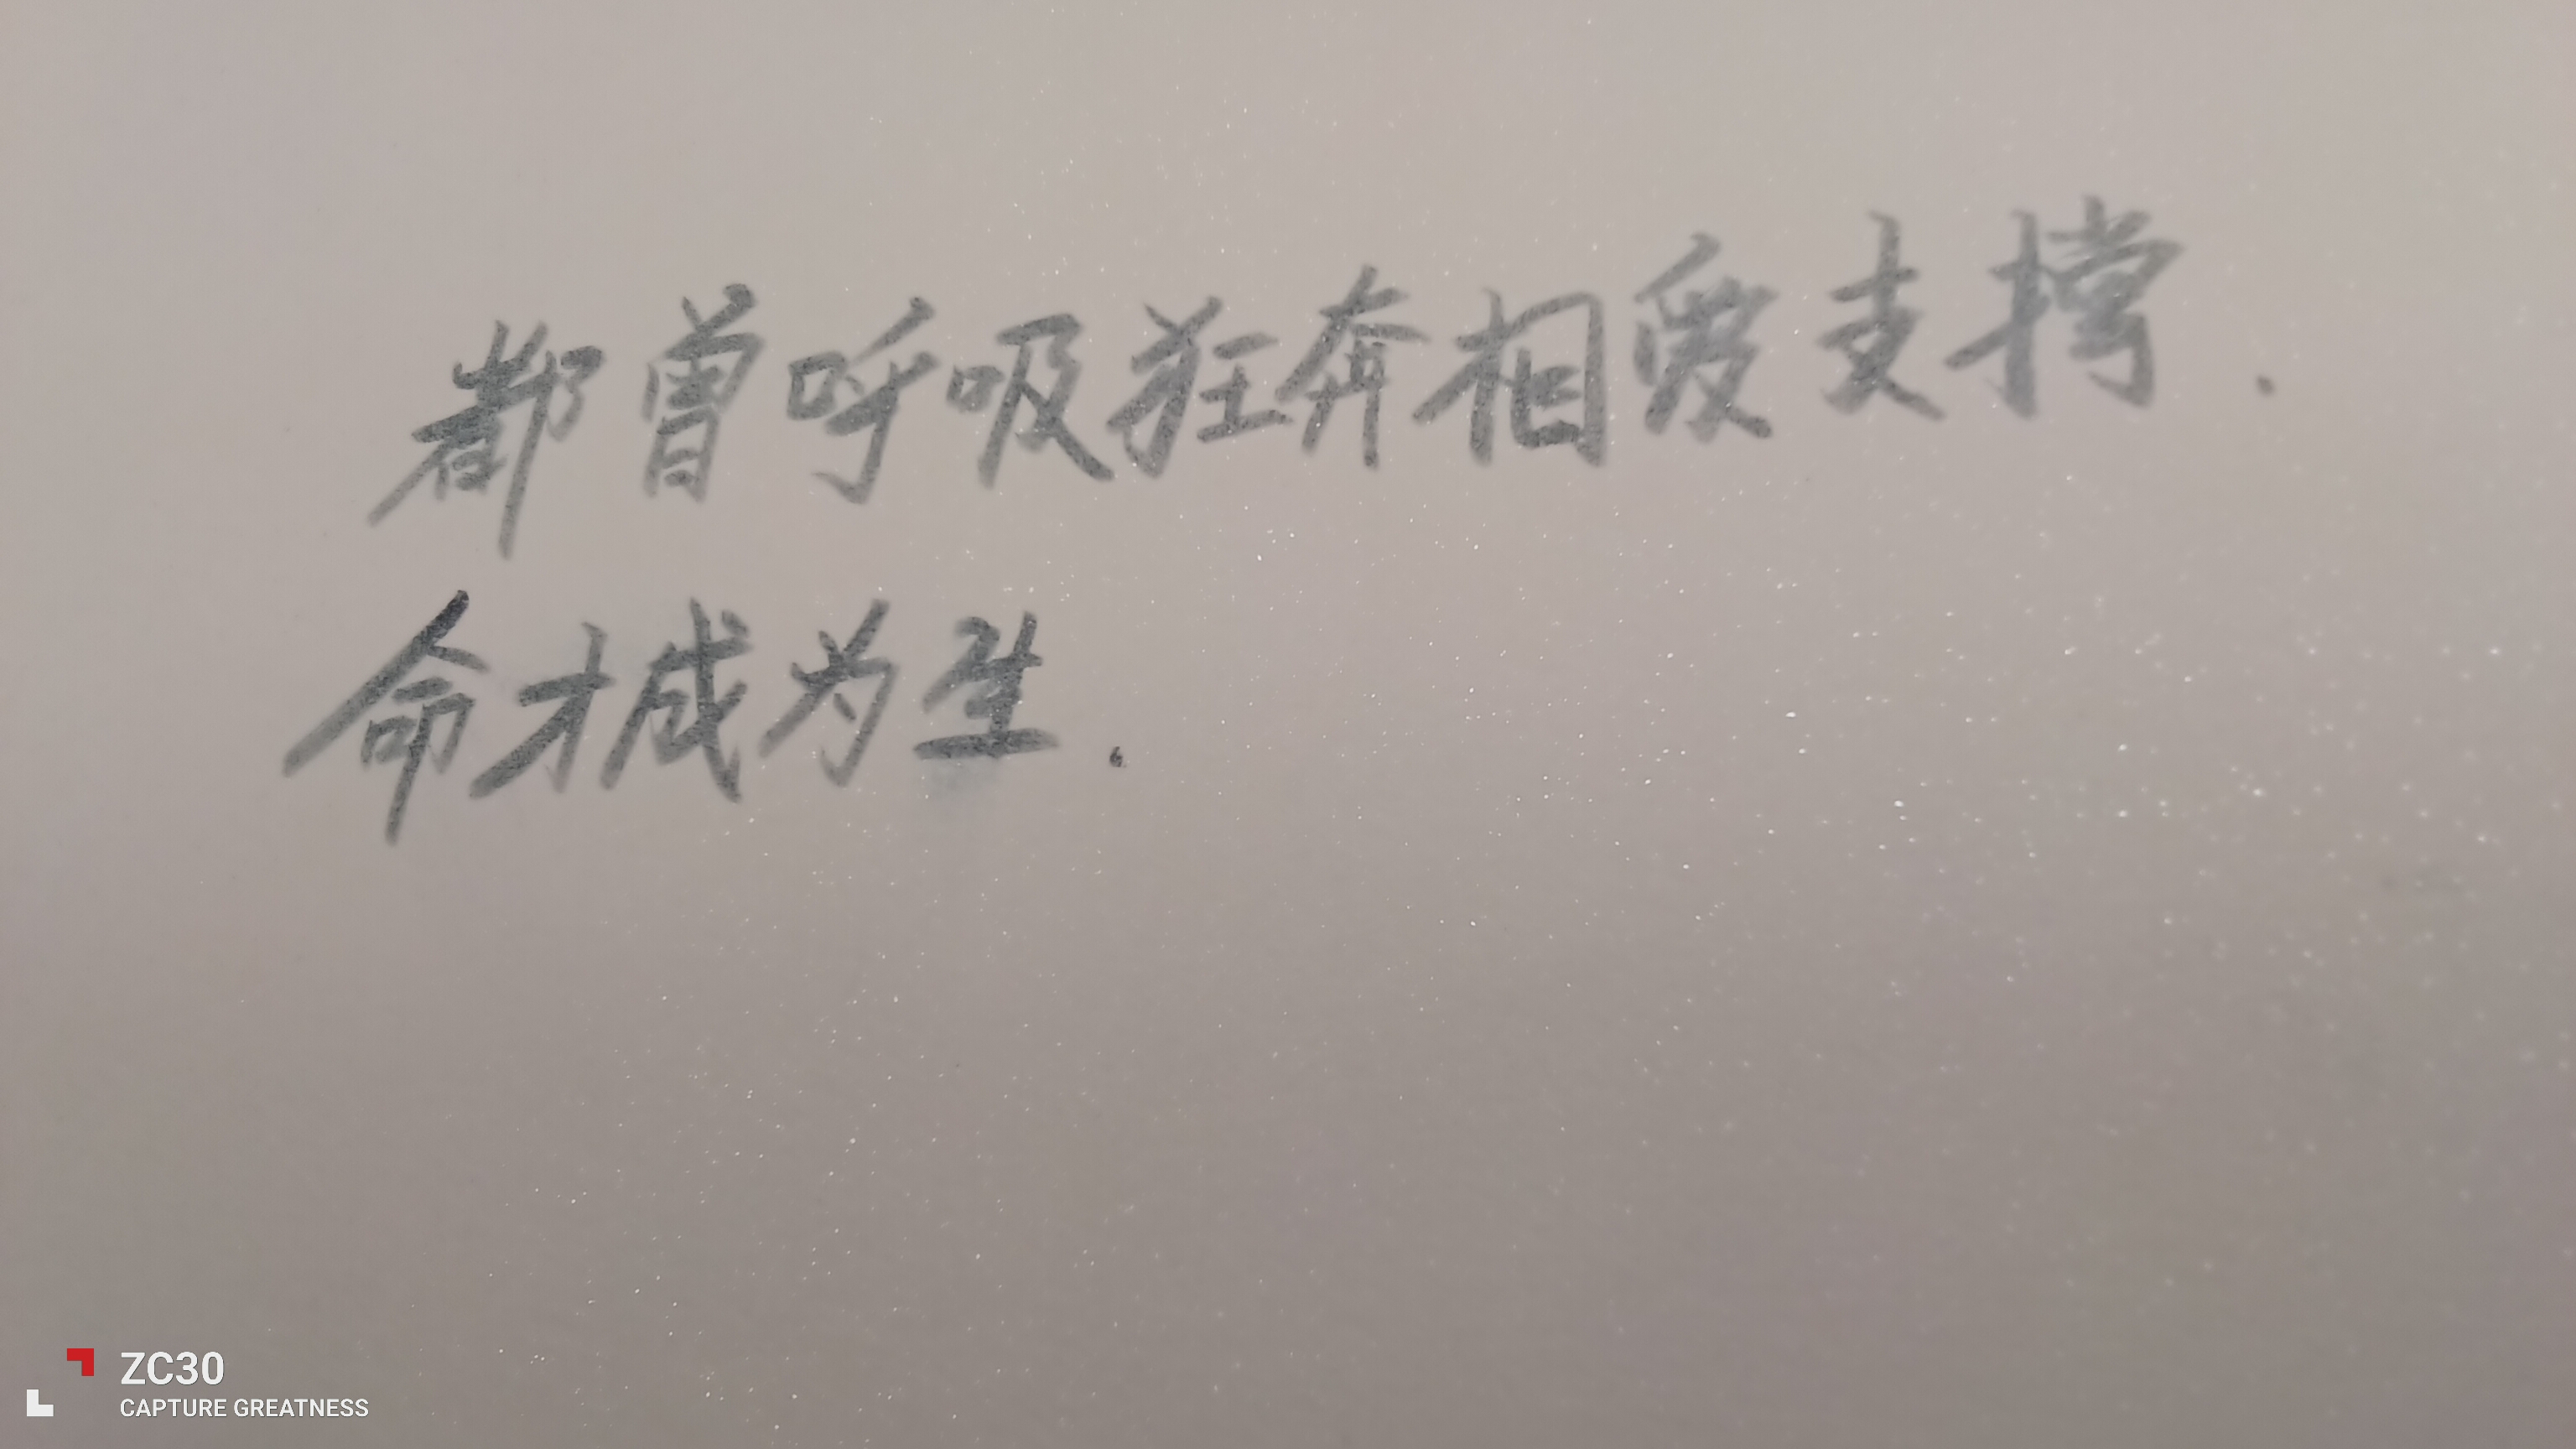 都曾呼吸狂奔相爱支撑.
命才成为生.
ZC30
CAPTURE GREATNESS